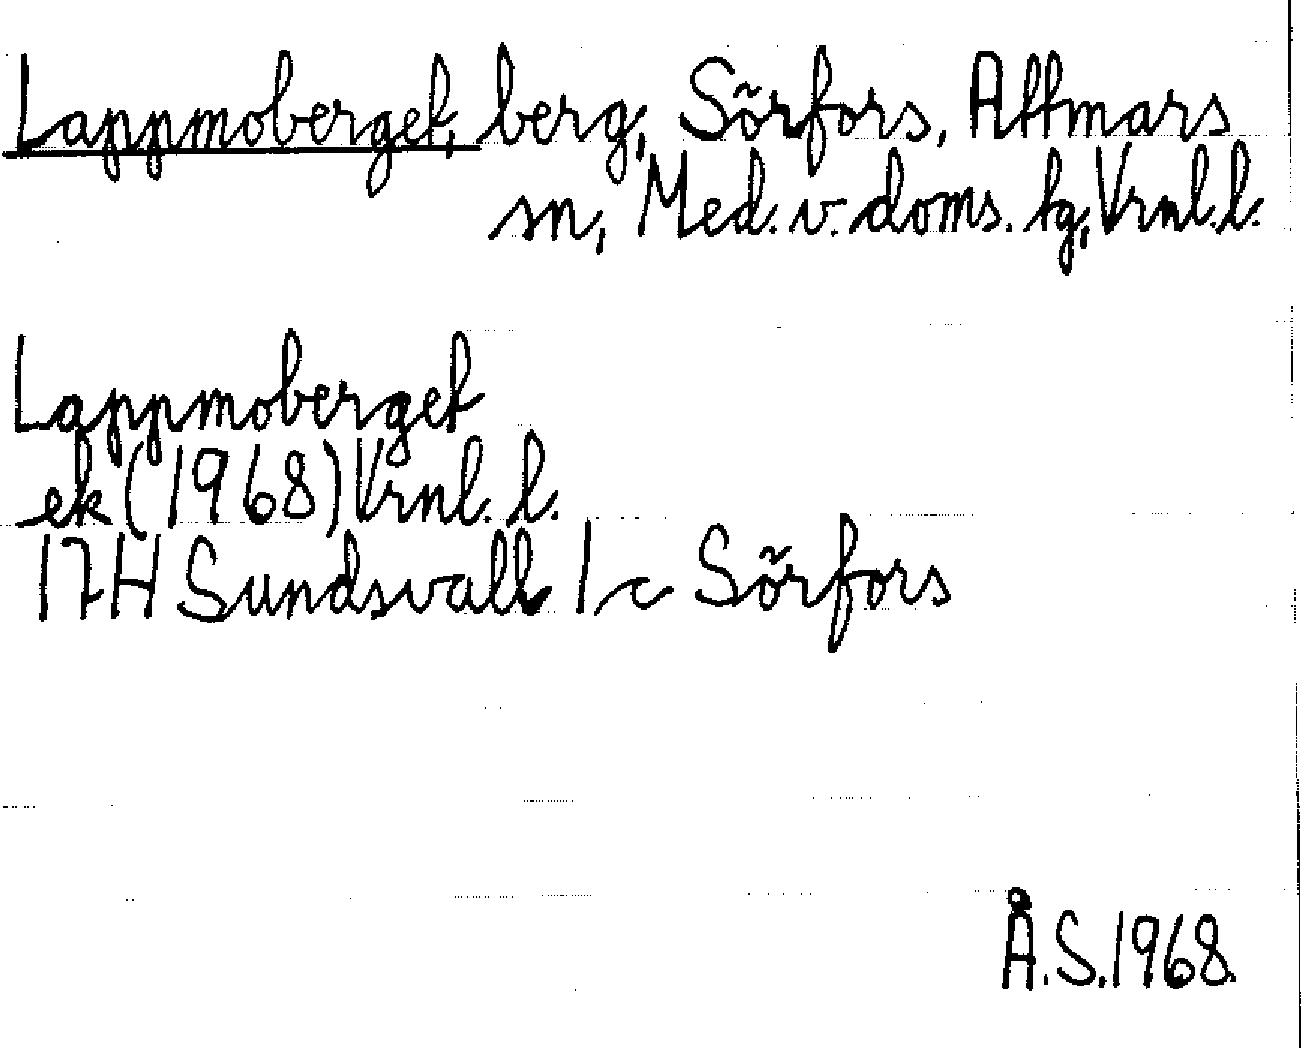 Lappmoberget, berg, Sörfors, Attmars
sn, Med. v. doms. tg, Vrnl. l.
Lappmoberget
ek (1968) Vrnl. l.
17H Sundsvall 1 c Sörfors
Å.S. 1968.